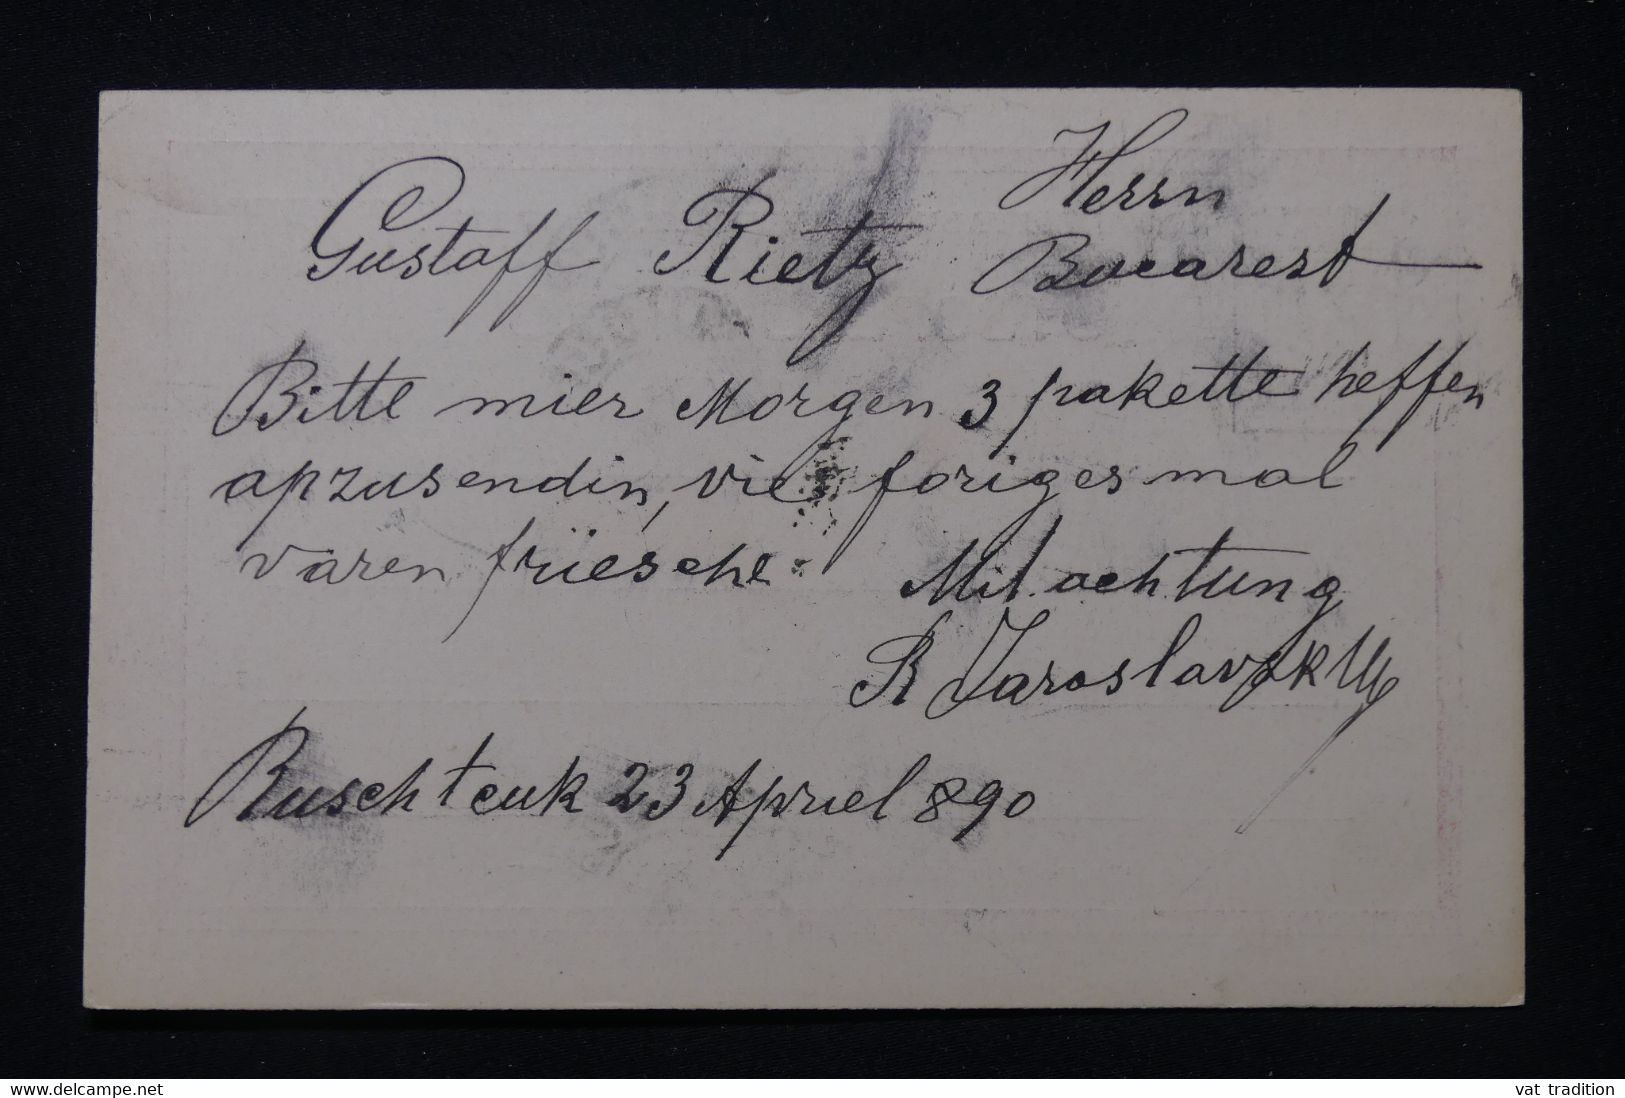 Herrn
Gustaff Rietz Bucarest
Bitte mier Morgen 3 pakette heffen
apzusendin, vie foriges mal
varen friesche. Mit achtung
R Jaroslavsky
Ruschtcuk 23 Apriel 890
www.delcampe.net
vat_tradition